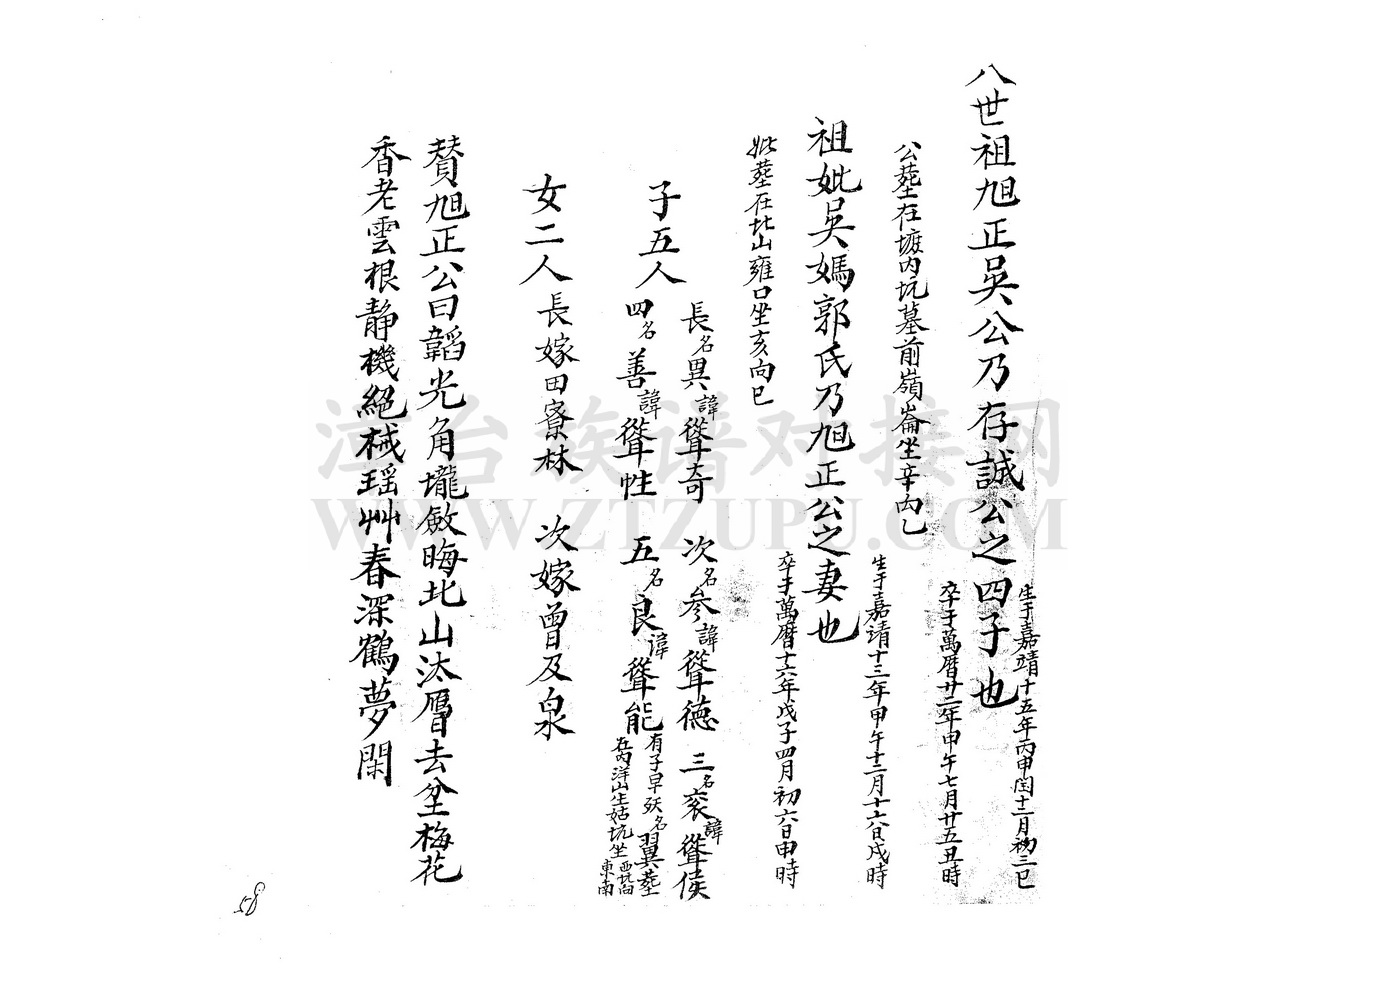 八世祖旭正吳公乃存誠公之四子也
生于嘉靖十五年丙申閏十二月初三巳
卒于萬曆廿二年甲午七月廿五丑時
公塟在壙內坑墓前嶺崙坐辛向乙
祖妣吳媽郭氏乃旭正公之妻也
生于嘉靖十三年甲午十二月十六日戌時
卒于萬曆十六年戊子四月初六日申時
妣塟在北山雍口坐亥向巳
子五人
長名異諱聳奇 次名參諱聳德 三名衮諱聳俟
四名善諱聳性 五名良諱聳能
有子早殀名翼塟
在內洋山生姑坑坐西坑向東南
女二人 長嫁田寮林 次嫁曾及泉
贊旭正公曰韜光角壠斂晦北山汰膺去坌梅花
香老雲根靜機絕械瑶艸春深鶴夢閑
58
漳台族谱对接网
WWW.ZTZUPU.COM